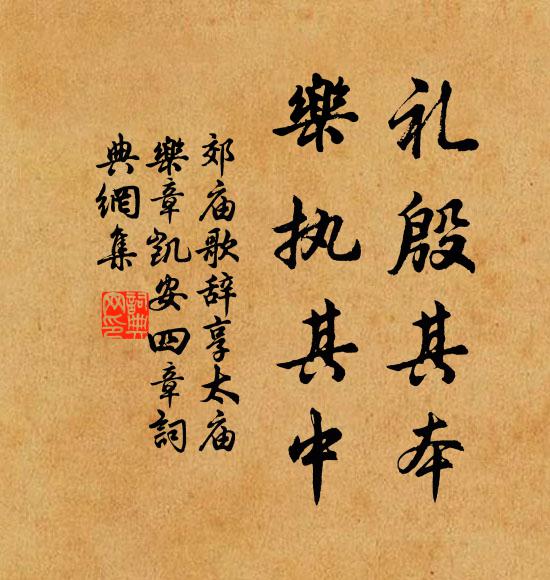 礼殷其本
樂执其中
郊庙歌辞享太庙
樂章凯安四章詞
典網集
詞典
网印